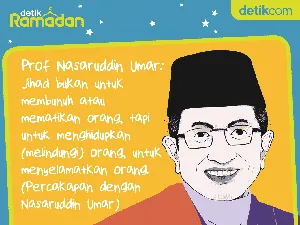 detik
Ramadan
detikcom
Prof Nasaruddin Umar:
Jihad bukan untuk
membunuh atau
mematikan orang, tapi
untuk menghidupkan
(melindungi) orang, untuk
menyelamatkan orang
(Percakapan dengan
Nasaruddin Umar)